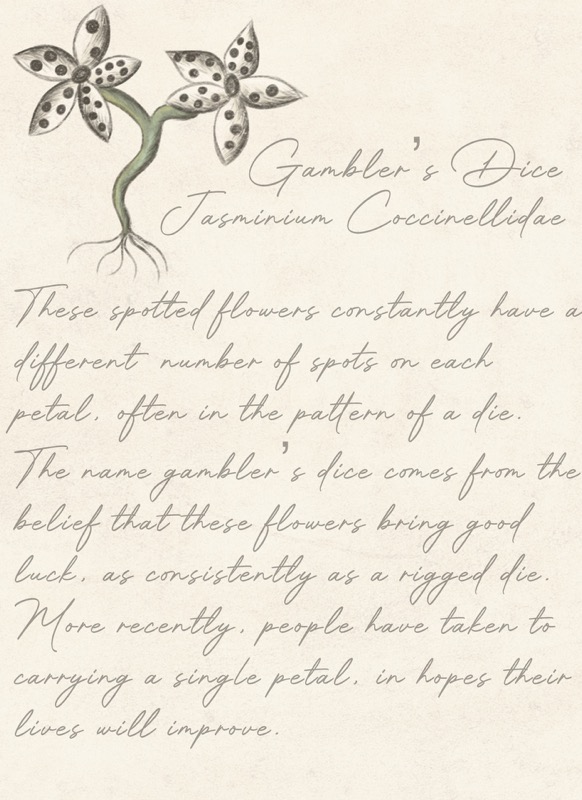 Gambler's Dice
Jasminium Coccinellidae
These spotted flowers constantly have a
different number of spots on each
petal, often in the pattern of a die.
The name gambler's dice comes from the
belief that these flowers bring good
luck, as consistently as a rigged die.
More recently, people have taken to
carrying a single petal, in hopes their
lives will improve.